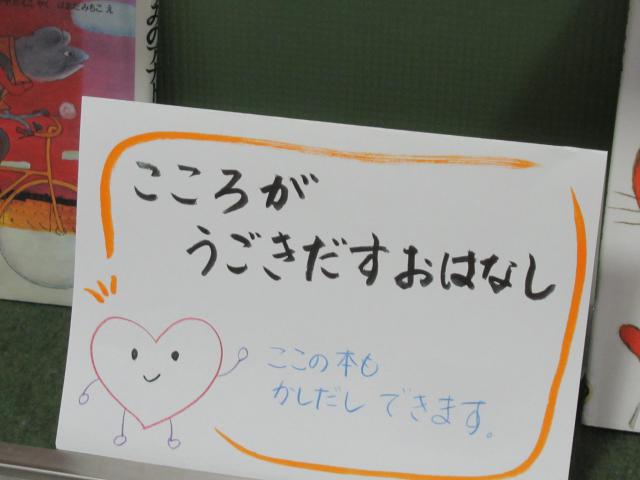 こころが
うごきだすおはなし
ここの本も
かしだしできます。